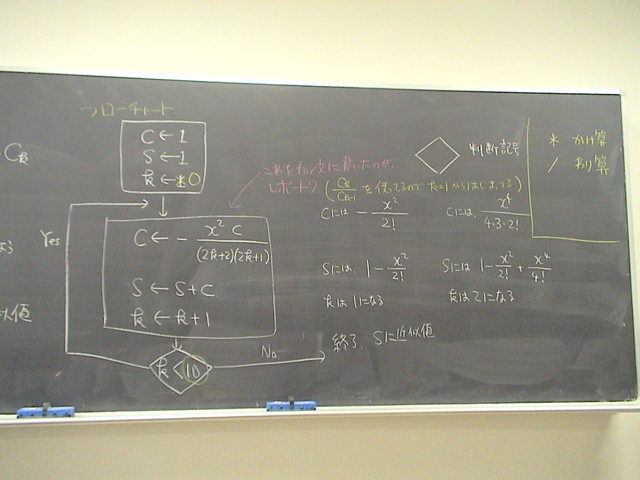 フローチャート
C ← 1
S ← 1
k ← 0
Ck
Yes
C ← - x² C / (2k+2)(2k+1)
S ← S + C
k ← k + 1
似値
k < 10
No
終了、Sに近似値
これをfor文に書いたのが、
レポート2 (Ck/Ck-1 を使ってるので k=1からはじまってる)
判断記号
* かけ算
/ わり算
Cには - x²/2!
Cには、 x⁴/4·3·2!
Sには 1 - x²/2!
Sには 1 - x²/2! + x⁴/4!
kは1になる
kは2になる